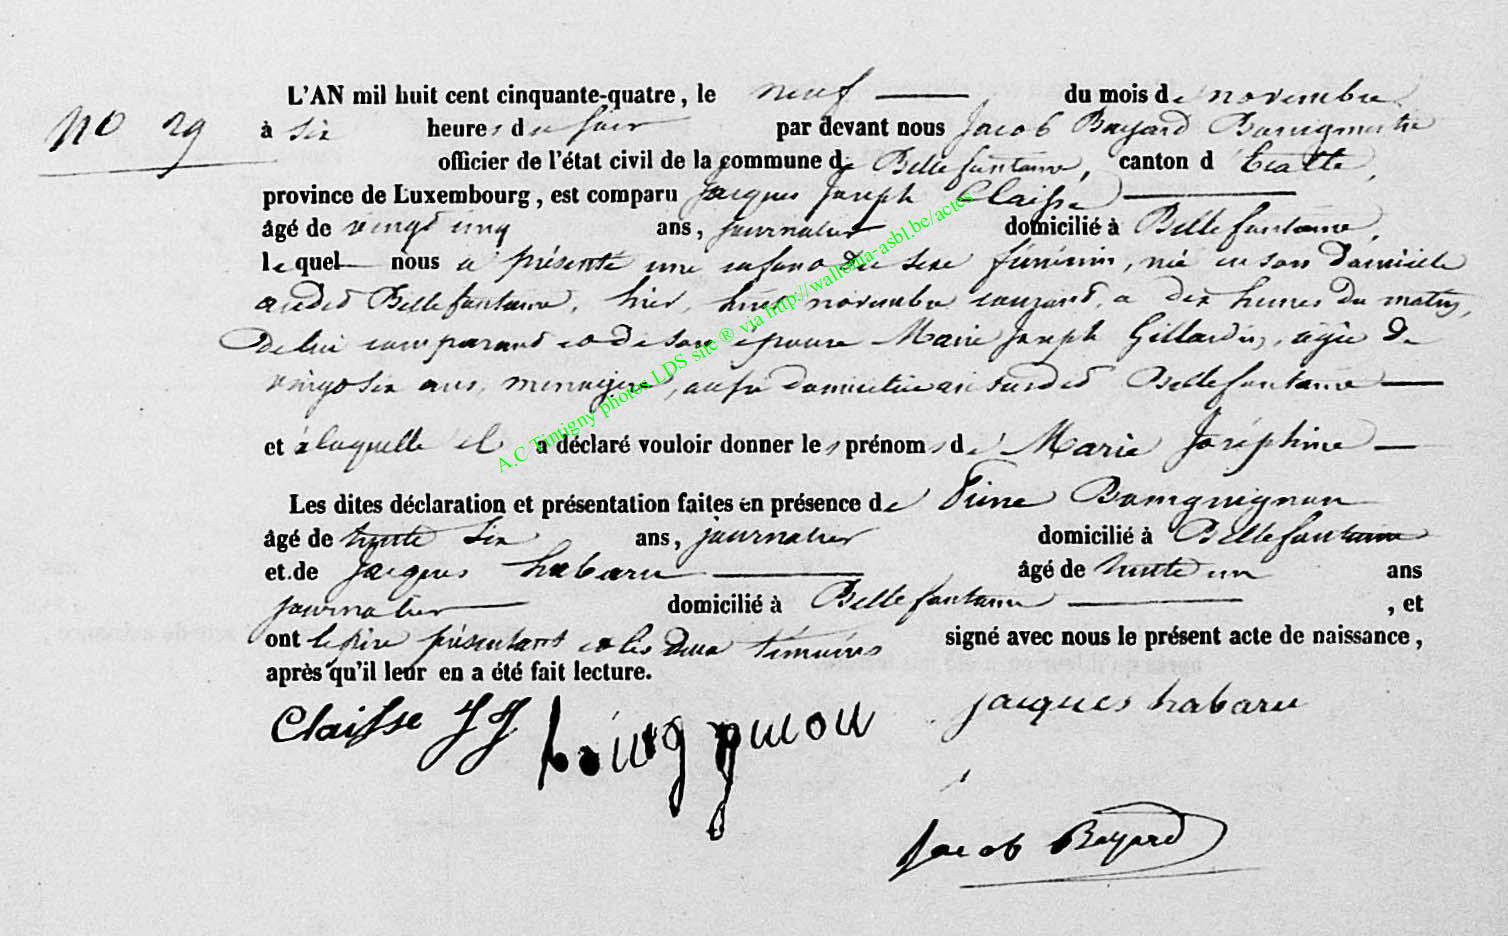 No 29
L'AN mil huit cent cinquante-quatre, le neuf du mois de novembre
à six heures du soir par devant nous Jacob Bayard Bourgmestre
officier de l'état civil de la commune de Bellefontaine, canton d'Etalle,
province de Luxembourg, est comparu Jacques Joseph Claisse
âgé de vingt cinq ans, journalier domicilié à Bellefontaine,
lequel nous a présenté une enfant du sexe féminin, née en son domicile
audit Bellefontaine, hier, huit novembre courant, a dix heures du matin,
de lui comparant et de son épouse Marie Joseph Gillardin, agée de
vingt six ans, menagère, aussi domiciliée au susdit Bellefontaine
et à laquelle il a déclaré vouloir donner les prénoms de Marie Joséphine
Les dites déclaration et présentation faites en présence de Bourguignon
âgé de trente six ans, journalier domicilié à Bellefontaine
et de Jacques habaru âgé de trente un ans
journalier domicilié à Bellefontaine, et
ont le père présentant et les deux témoins signé avec nous le présent acte de naissance,
après qu'il leur en a été fait lecture.
Claisse JJ bourgguion jacques habaru
Jacob Bayard
A.C Tintigny photos LDS site ® via http://wallonia-asbl.be/actes